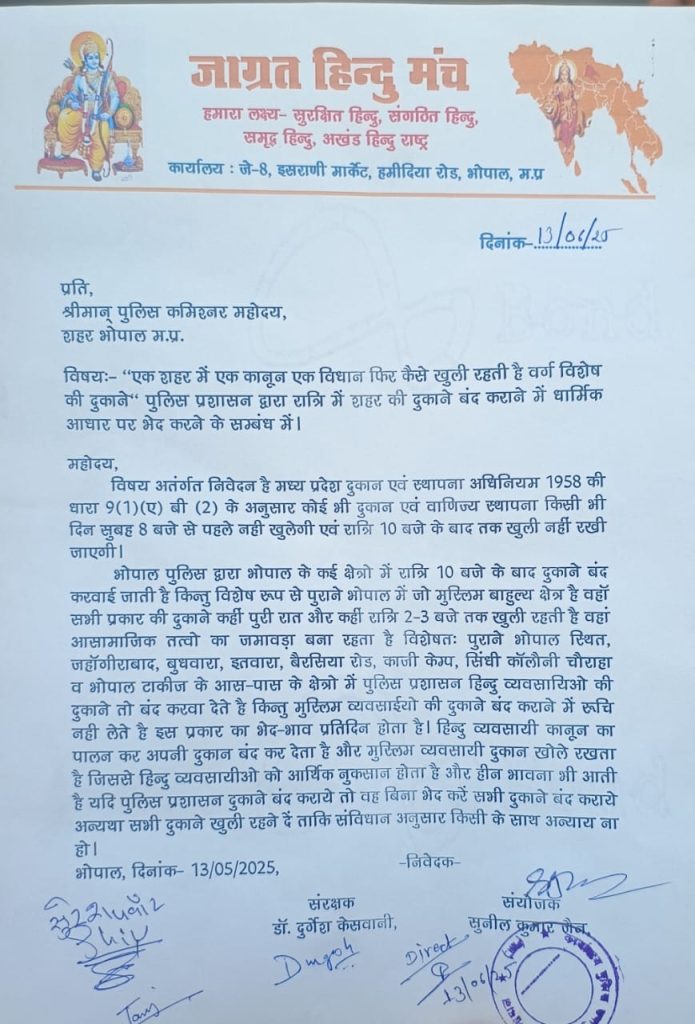 जाग्रत हिन्दु मंच
हमारा लक्ष्य- सुरक्षित हिन्दु, संगठित हिन्दु,
समृद्ध हिन्दु, अखंड हिन्दु राष्ट्र
कार्यालय : जे-8, इसराणी मार्केट, हमीदिया रोड, भोपाल, म.प्र
दिनांक- 13/06/25
प्रति,
श्रीमान् पुलिस कमिश्नर महोदय,
शहर भोपाल म.प्र.
विषयः- “एक शहर में एक कानून एक विधान फिर कैसे खुली रहती है वर्ग विशेष
की दुकाने“ पुलिस प्रशासन द्वारा रात्रि में शहर की दुकाने बंद कराने में धार्मिक
आधार पर भेद करने के सम्बंध में।
महोदय,
विषय अतंर्गत निवेदन है मध्य प्रदेश दुकान एवं स्थापना अधिनियम 1958 की
धारा 9(1)(ए) बी (2) के अनुसार कोई भी दुकान एवं वाणिज्य स्थापना किसी भी
दिन सुबह 8 बजे से पहले नही खुलेगी एवं रात्रि 10 बजे के बाद तक खुली नहीं रखी
जाएगी।
भोपाल पुलिस द्वारा भोपाल के कई क्षेत्रो में रात्रि 10 बजे के बाद दुकाने बंद
करवाई जाती है किन्तु विशेष रूप से पुराने भोपाल में जो मुस्लिम बाहुल्य क्षेत्र है वहाॅ
सभी प्रकार की दुकाने कहीं पुरी रात और कहीं रात्रि 2-3 बजे तक खुली रहती है वहां
आसामाजिक तत्वो का जमावड़ा बना रहता है विशेषतः पुराने भोपाल स्थित,
जहाॅगीराबाद, बुधवारा, इतवारा, बैरसिया रोड, काजी केम्प, सिंधी काॅलौनी चौराहा
व भोपाल टाकीज के आस-पास के क्षेत्रो में पुलिस प्रशासन हिन्दु व्यवसायिओ की
दुकाने तो बंद करवा देते है किन्तु मुस्लिम व्यवसाईयो की दुकाने बंद कराने में रूचि
नही लेते है इस प्रकार का भेद-भाव प्रतिदिन होता है। हिन्दु व्यवसायी कानून का
पालन कर अपनी दुकान बंद कर देता है और मुस्लिम व्यवसायी दुकान खोले रखता
है जिससे हिन्दु व्यवसायीओ को आर्थिक नुकसान होता है और हीन भावना भी आती
है यदि पुलिस प्रशासन दुकाने बंद कराये तो वह बिना भेद करें सभी दुकाने बंद कराये
अन्यथा सभी दुकाने खुली रहने दें ताकि संविधान अनुसार किसी के साथ अन्याय ना
हो।
भोपाल, दिनांक- 13/05/2025,
-निवेदक-
संरक्षक
डाॅ. दुर्गेश केसवानी,
संयोजक
सुनील कुमार जैन
Durgesh
Direct
13/06/25